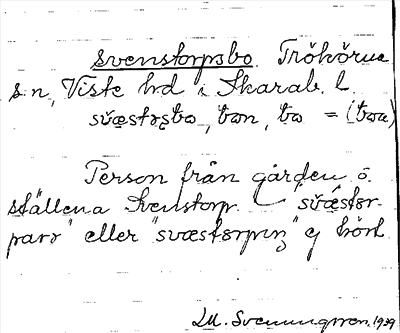 svenstorpsbo. Trökörna
sn, Viste hd i Skarab. l.
svæstɔʂbo, bon, bo = (boa)
Person från gården o.
ställena Svenstorp "svæstɔr-
parɔ" eller "svæstɔrpiŋ" ej hört
M. Svenungsson. 1939